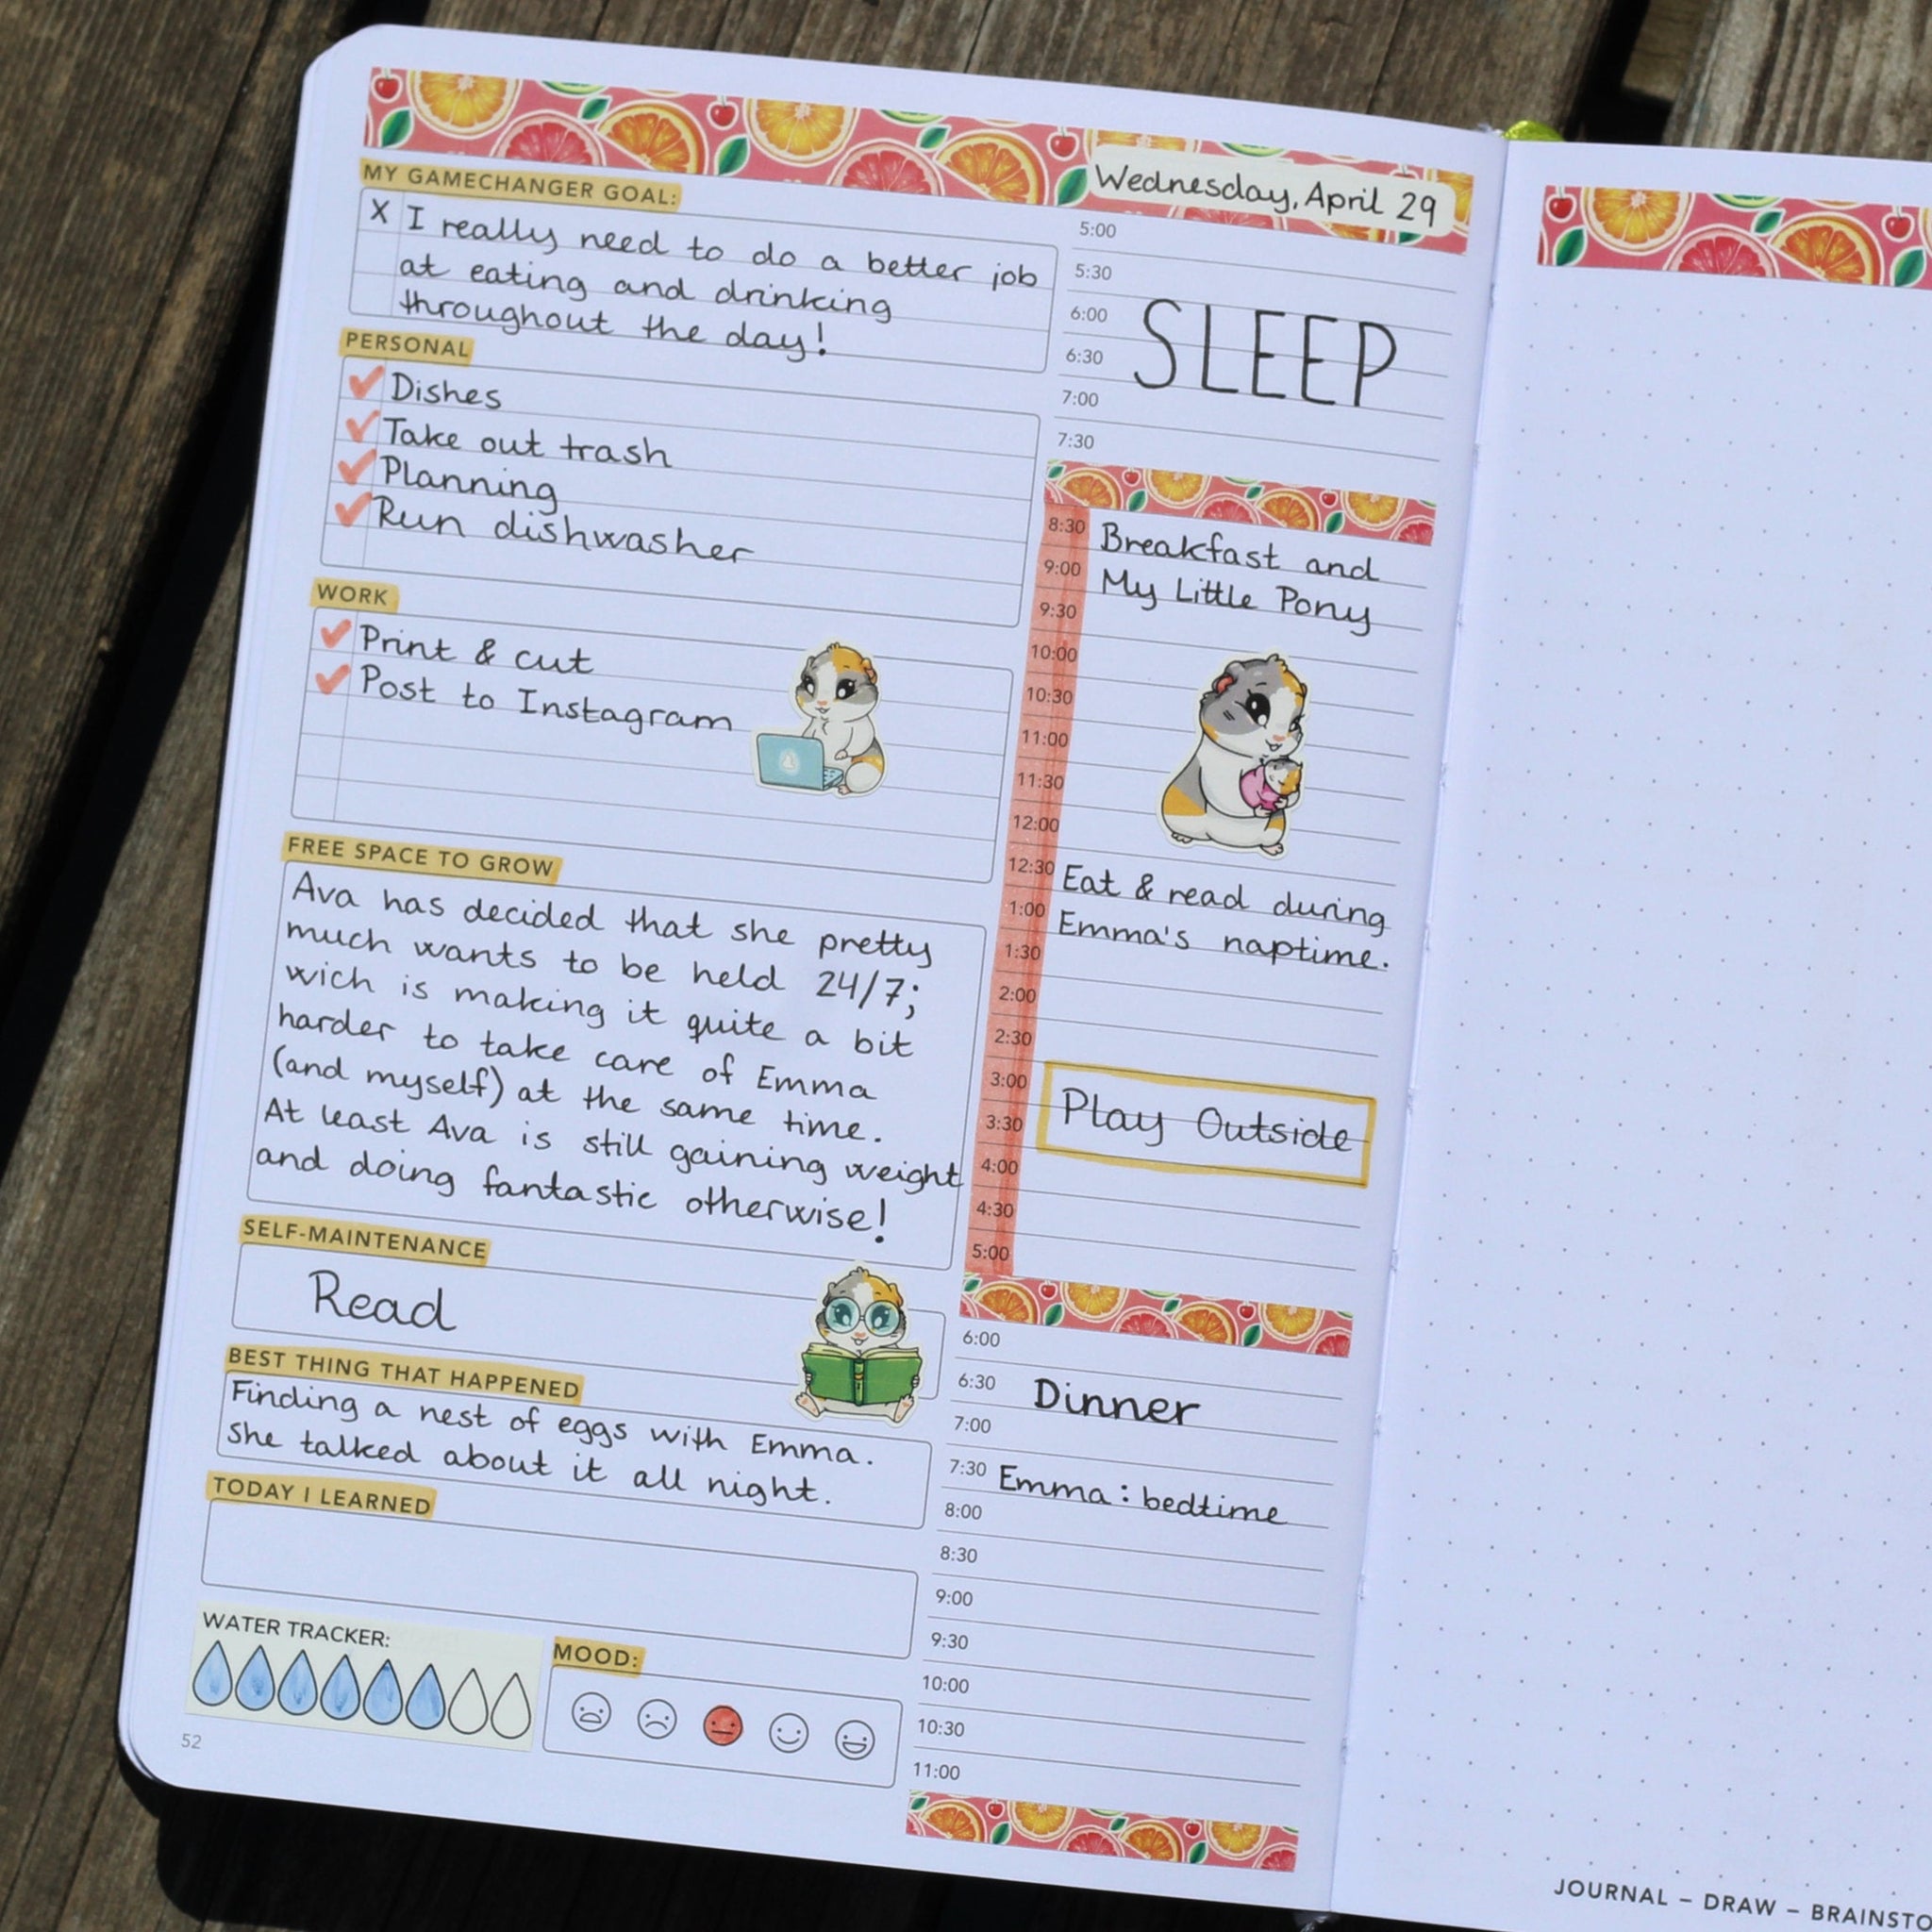 Wednesday, April 29
MY GAMECHANGER GOAL:
X I really need to do a better job
at eating and drinking
throughout the day!
PERSONAL
Dishes
Take out trash
Planning
Run dishwasher
WORK
Print & cut
Post to Instagram
FREE SPACE TO GROW
Ava has decided that she pretty
much wants to be held 24/7;
wich is making it quite a bit
harder to take care of Emma
(and myself) at the same time.
At least Ava is still gaining weight
and doing fantastic otherwise!
SELF-MAINTENANCE
Read
BEST THING THAT HAPPENED
Finding a nest of eggs with Emma.
She talked about it all night.
TODAY I LEARNED
WATER TRACKER:
MOOD:
52
5:00
5:30
6:00
SLEEP
6:30
7:00
7:30
8:30 Breakfast and
9:00 My Little Pony
9:30
10:00
10:30
11:00
11:30
12:00
12:30 Eat & read during
1:00 Emma's naptime.
1:30
2:00
2:30
3:00
Play Outside
3:30
4:00
4:30
5:00
6:00
6:30 Dinner
7:00
7:30 Emma: bedtime
8:00
8:30
9:00
9:30
10:00
10:30
11:00
JOURNAL – DRAW – BRAINSTO